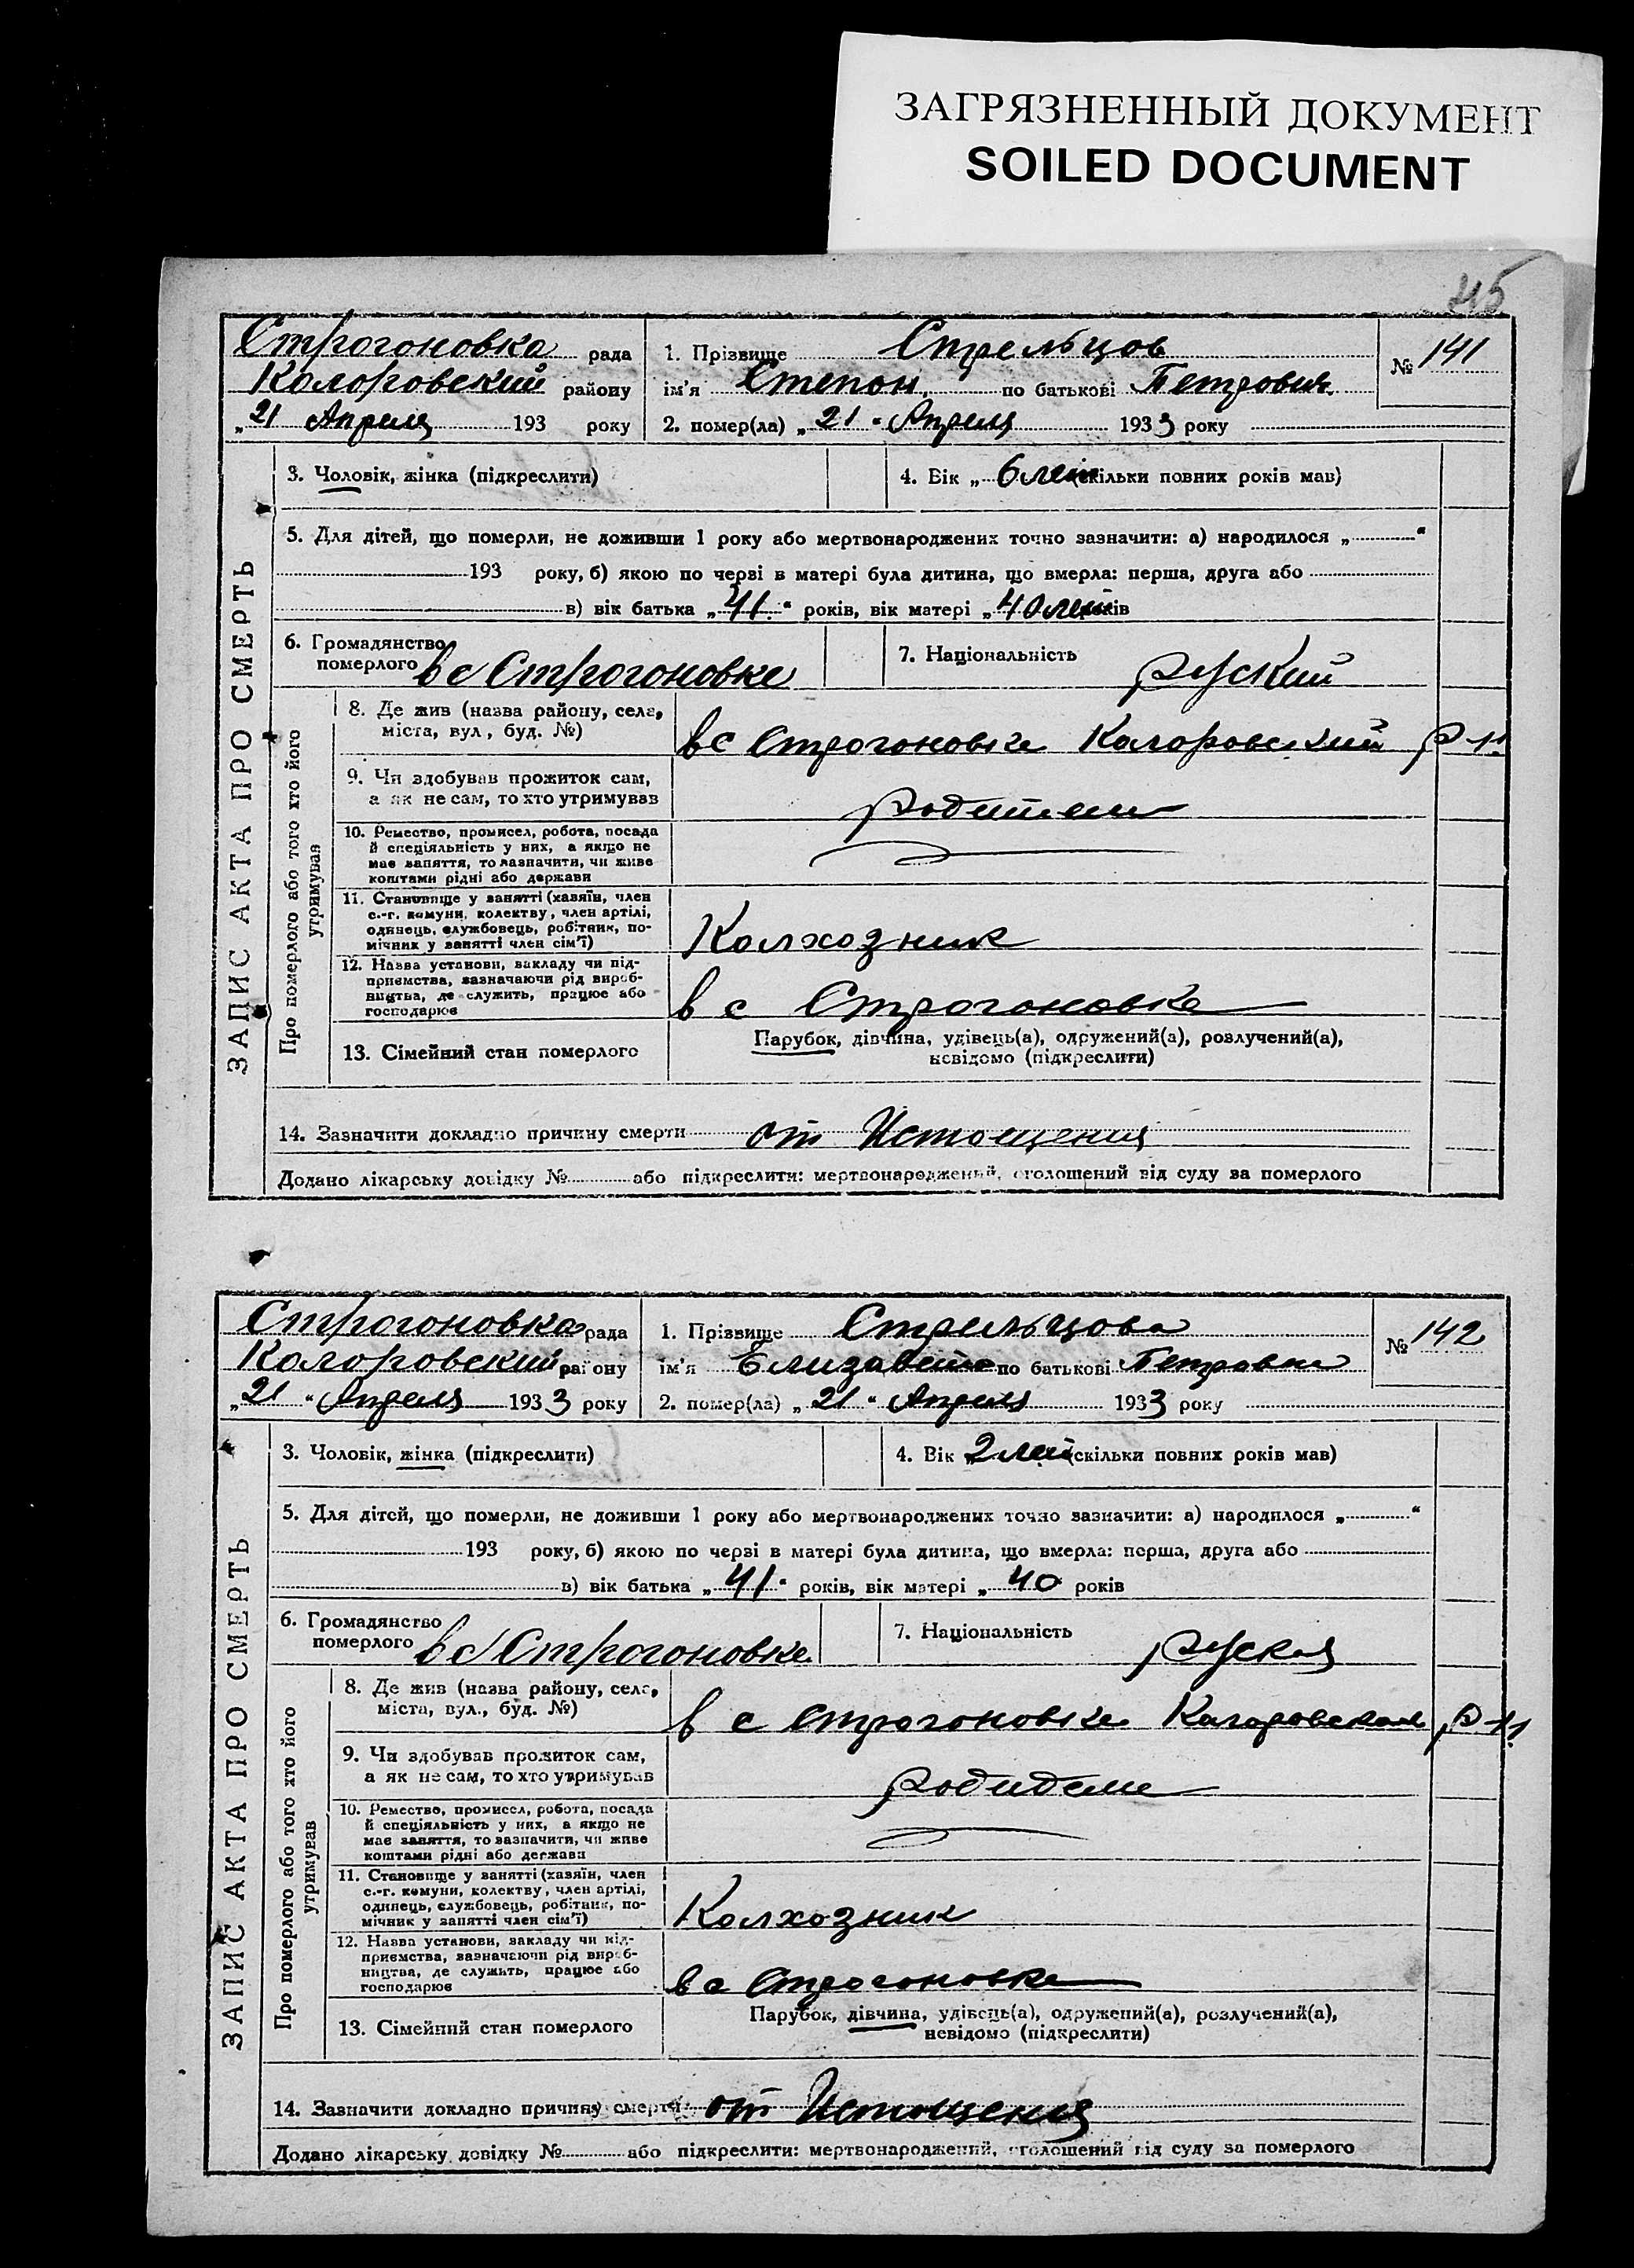 ЗАГРЯЗНЕННЫЙ ДОКУМЕНТ
SOILED DOCUMENT
Строгоновка рада
Каларовский району
„21 Апреля 193 року
1. Прізвище Стрельцов
ім'я Степон по батькові Петрович
2. помер(ла) „21“ Апреля 1933 року
№ 141
ЗАПИС АКТА ПРО СМЕРТЬ
3. Чоловік, жінка (підкреслити)
4. Вік „ 6 лет скільки повних років мав)
5. Для дітей, що померли, не доживши 1 року або мертвонароджених точно зазначити: а) народилося „ “
193 року, б) якою по черві в матері була дитина, що вмерла: перша, друга або
в) вік батька „41“ років, вік матері „40 лет років
6. Громадянство
померлого в с Строгоновке
7. Національність руский
Про померлого або того хто його
утримував
8. Де жив (назва району, села,
міста, вул., буд. №)
в с Строгоновке Каларовский р-н
9. Чи здобував прожиток сам,
а як не сам, то хто утримував
родители
10. Ремество, промисел, робота, посада
й спеціяльність у них, а якщо не
має заняття, то зазначити, чи живе
коштами рідні або держави
11. Становище у занятті (хазяїн, член
с.-г. комуни, колективу, член артілі,
одинець, службовець, робітник, по-
мічник у занятті член сім'ї)
Колхозник
12. Назва установи, закладу чи під-
приємства, зазначаючи рід вироб-
ництва, де служить, працює або
господарює
в с Строгоновке
13. Сімейний стан померлого
Парубок, дівчина, удівець(а), одружений(а), розлучений(а),
невідомо (підкреслити)
14. Зазначити докладно причину смерти от Истощения
Додано лікарську довідку № або підкреслити: мертвонароджений, оголошений від суду за померлого
Строгоновка рада
Каларовский району
„21“ Апреля 1933 року
1. Прізвище Стрельцова
ім'я Елизавета по батькові Петровна
2. помер(ла) „21“ Апреля 1933 року
№ 142
ЗАПИС АКТА ПРО СМЕРТЬ
3. Чоловік, жінка (підкреслити)
4. Вік „ 2 лет (скільки повних років мав)
5. Для дітей, що померли, не доживши 1 року або мертвонароджених точно зазначити: а) народилося „ “
193 року, б) якою по черзі в матері була дитина, що вмерла: перша, друга або
в) вік батька „41“ років, вік матері „40 років
6. Громадянство
померлого в с Строгоновке
7. Національність руская
Про померлого або того хто його
утримував
8. Де жив (назва району, села,
міста, вул., буд. №)
в с Строгоновке Каларовском р-н
9. Чи здобував прожиток сам,
а як не сам, то хто утримував
родидели
10. Ремество, промисел, робота, посада
й спеціяльність у них, а якщо не
має заняття, то зазначити, чи живе
коштами рідні або держави
11. Становище у занятті (хазяїн, член
с.-г. комуни, колективу, член артілі,
одинець, службовець, робітник, по-
мічник у занятті член сім'ї)
Колхозник
12. Назва установи, закладу чи під-
приємства, зазначаючи рід вироб-
ництва, де служить, працює або
господарює
в с Строгоновке
13. Сімейний стан померлого
Парубок, дівчина, удівець(а), одружений(а), розлучений(а),
невідомо (підкреслити)
14. Зазначити докладно причину смерти от Истощения
Додано лікарську довідку № або підкреслити: мертвонароджений, оголошений від суду за померлого